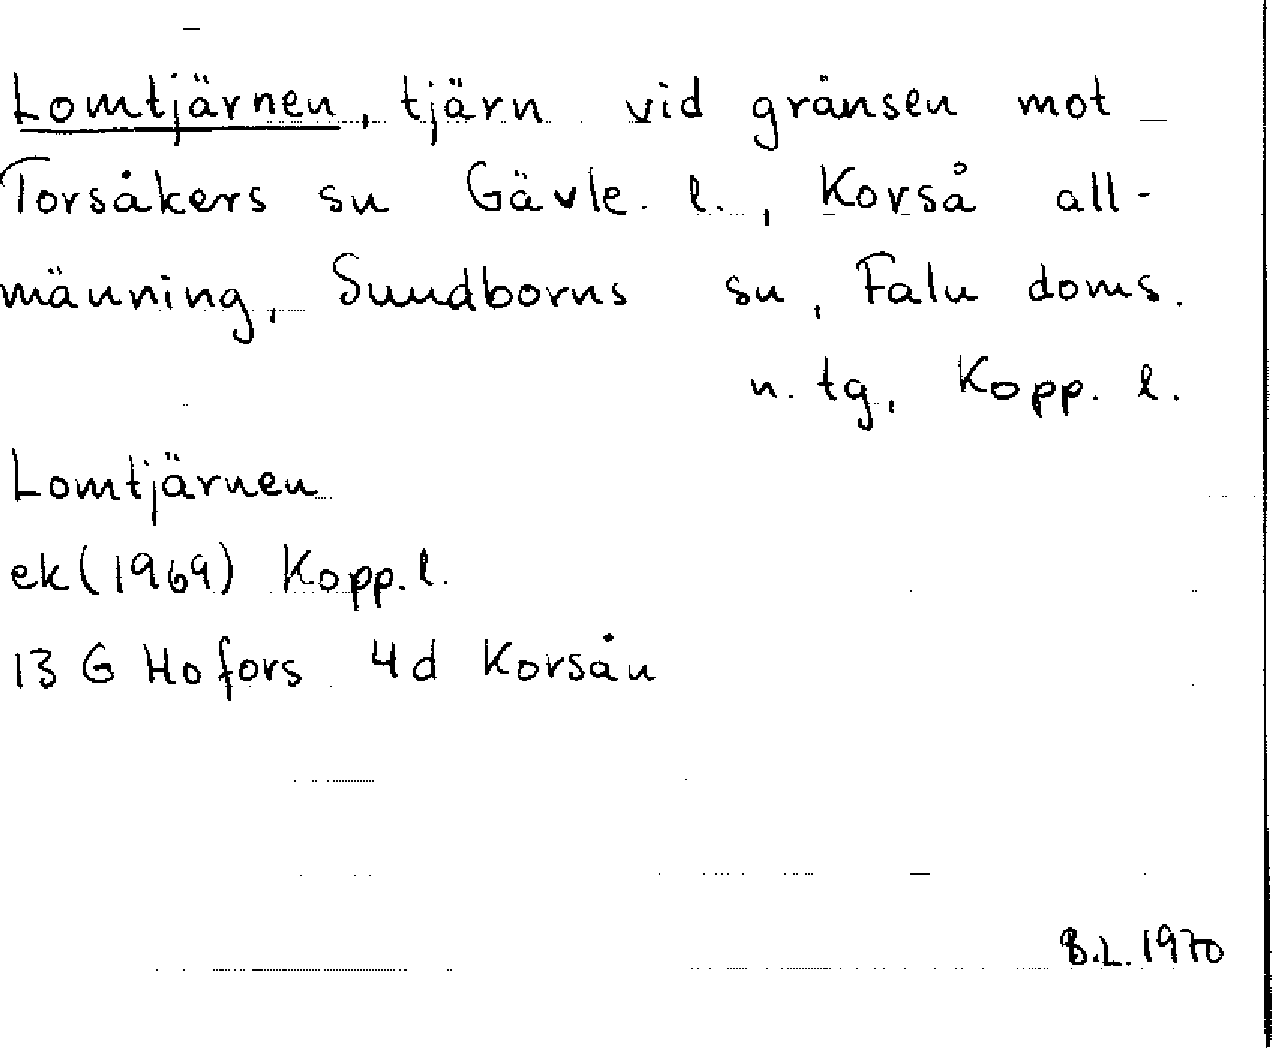 Lomtjärnen, tjärn vid gränsen mot
Torsåkers sn Gävle. l., Korså all-
männing, Sundborns sn, Falu doms.
n. tg, Kopp. l.
Lomtjärnen
ek (1969) Kopp. l.
13 G Hofors 4d Korsån
B.L. 1970